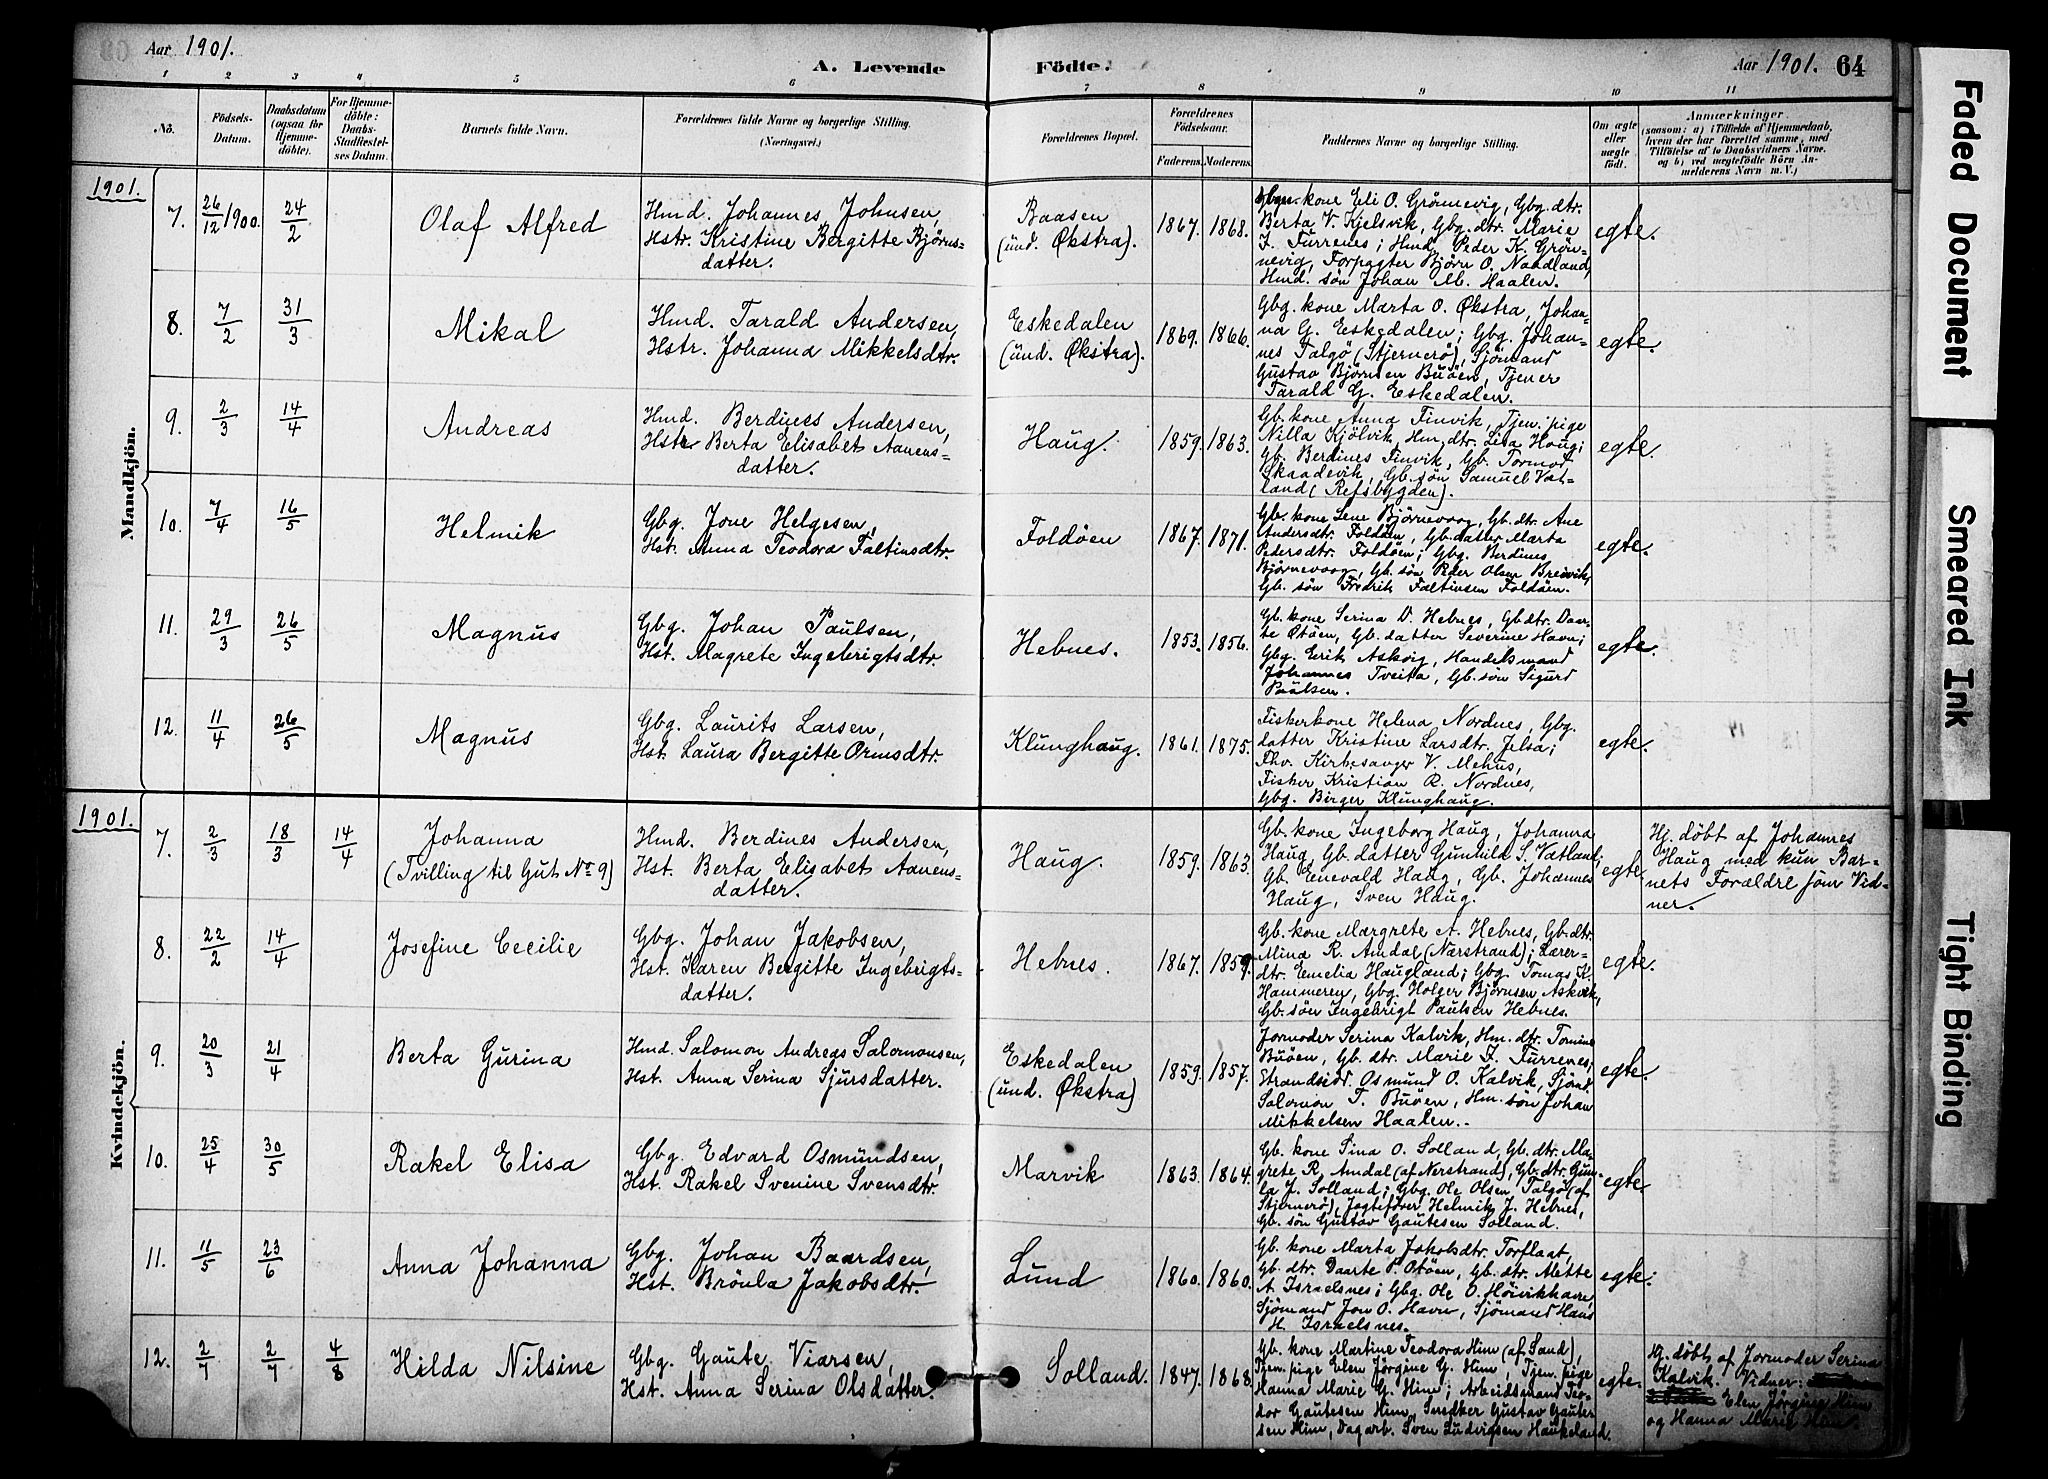 Aar 1901.
A. Levende Födte.
Aar 1901. 64
1 2 3 4 5 6 7 8 9 10 11
No.
Födsels-
Datum.
Daabsdatum
(ogsaa for
Hjemme-
döbte).
For Hjemme-
döbte:
Daabs-
Stadfæstel-
ses Datum.
Barnets fulde Navn.
Forældrenes fulde Navne og borgerlige Stilling.
(Næringsvei.)
Forældrenes Bopæl.
Forældrenes
Födselsaar.
Faderens. Moderens.
Faddernes Navne og borgerlige Stilling.
Om ægte
eller
uægte
födt.
Anmærkninger
(saasom: a) i Tilfælde af Hjemmedaab,
hvem der har forrettet samme, med
Tilföielse af to Daabsvidners Navne.
og b) ved uægtefödte Börn An-
melderens Navn m. V.)
1901.
Mandkjön.
7. 26/12 1900. 24/2 Olaf Alfred
Hmd. Johannes Johnsen,
Hstr. Kristine Bergitte Björns-
datter.
Baasen
(und. Økstra).
1867. 1868.
kone Eli O. Grönnevig, Gbg. dtr.
Berta V. Kjelsvik, Gbg. dtr. Marie
J. Furrenes; Hmd. Peder K. Grön-
nevig, Forpagter Björn O. Naadland,
Hmd. sön Johan M. Haalen.
egte.
8. 7/2 31/3 Mikal
Hmd. Tarald Andersen,
Hstr. Johanna Mikkelsdtr.
Eskedalen
(und. Økstra).
1869. 1866.
Gbg. kone Marta O. Økstra, Johan-
na G. Eskedalen; Gbg. Johan-
nes Talgö (Stjernerö), Sjömand
Gustav Björnsen Buöen, Tjener
Tarald G. Eskedalen.
egte.
9. 2/3 14/4 Andreas
Hmd. Berdines Andersen,
Hstr. Berta Elisabet Aanens-
datter.
Haug.
1859. 1863.
Gb. kone Anna Finvik, Tjen. pige
Nilla Kjölvik, Hm. dtr. Lisa Haug;
Gb. Berdines Finvik, Gb. Tormod
Skaadevik, Gb. sön Samuel Vat-
land (Refsbygden).
egte.
10. 7/4 16/5 Helmik
Gbg. Jone Helgesen,
Hst. Anna Teodora Faltinsdtr.
Foldöen
1867. 1871.
Gb. kone Lene Björnevaag, Gb. dtr. Ane
Andersdtr. Foldöen, Gb. datter Marta
Pedersdtr. Foldöen; Gbg. Berdines
Björnevaag, Gb. sön Peder Olsen Breivik,
Gb. sön Fredrik Faltinsen Foldöen.
egte.
11. 29/3 26/5 Magnus
Gbg. Johan Paulsen,
Hst. Magrete Ingebrigtsdtr.
Hebnes.
1853. 1856.
Gb. kone Serina D. Hebnes, Gb. dtr. Daar-
te Otöen, Gb. datter Severine Havn;
Gbg. Eerik Askvig, Handelsmand
Johannes Tveita, Gb. sön Sigurd
Paulsen.
egte.
12. 11/4 26/5 Magnus
Gbg. Laurits Larsen,
Hst. Laura Bergitte Ormsdtr.
Klunghaug.
1861. 1875.
Fiskerkone Helena Nordnes, Gbg.
datter Kristine Larsdtr. Jelsa;
Fhv. Kirkesanger V. Mehus,
Fisker Kristian R. Nordnes,
Gbg. Birger Klunghaug.
egte.
1901.
Kvindekjön.
7. 2/3 18/3 14/4 Johanna
(Tvilling til Gut No 9)
Hmd. Berdines Andersen,
Hst. Berta Elisabet Aanens-
datter.
Haug.
1859. 1863.
Gb. kone Ingeborg Haug, Johanna
Haug, Gb. datter Gunhild S. Vatland;
Gb. Enevald Haug, Gb. Johannes
Haug, Sven Haug.
egte.
Hj. döbt af Johannes
Haug med kun Bar-
nets Forældre som Vid-
ner.
8. 22/2 14/4 Josefine Cecilie
Gbg. Johan Jakobsen,
Hst. Karen Bergitte Ingebrigts-
datter.
Hebnes.
1867. 1859.
Gb. kone Margrete A. Hebnes, Gb. dtr.
Mina R. Amdal (Narstrand); Lærer-
dtr. Emelia Haugland; Gbg. Tomas K.
Hammeren, Gbg. Holger Björnsen Askvik,
Gb. sön Ingebrigt Paulsen Hebnes.
egte.
9. 20/3 21/4 Berta Gurina
Hmd. Salomon Andreas Salomonsen,
Hst. Anna Serina Sjursdatter.
Eskedalen
(und. Økstra)
1859. 1857.
Jormoder Serina Kalvik, Hm. dtr. Tomine
Buöen, Gb. dtr. Marie J. Furrenes;
Strandsidd. Osmund O. Kalvik, Sjömd.
Salomon T. Buöen, Hm. sön Johan
Mikkelsen Haalen.
egte.
10. 25/4 30/5 Rakel Elisa
Gbg. Edvard Osmundsen,
Hst. Rakel Svenine Svensdtr.
Marvik
1863. 1864.
Gb. kone Sina O. Solland, Gb. dtr. Ma-
grete R. Amdal (af Nerstrand), Gb. dtr. Gun-
la J. Solland; Gbg. Ole Olsen Talgö (af
Stjernerö), Jagtefører Helmik J. Hebnes,
Gb. sön Gustav Gautesen Solland.
egte.
11. 11/5 23/6 Anna Johanna
Gbg. Johan Baardsen,
Hst. Brönla Jakobsdtr.
Lund
1860. 1860.
Gb. kone Marta Jakobsdtr. Torflaat,
Gb. dtr. Daarte P. Otöen, Gb. dtr. Mette
A. Israelsnes; Gbg. Ole O. Höivikhavn,
Sjömand Jon O. Havn, Sjömand Hans
H. Israelsnes.
egte.
12. 2/7 2/7 4/8 Hilda Nilsine
Gbg. Gaute Viarsen,
Hst. Anna Serina Olsdatter.
Solland.
1847. 1868.
Gb. kone Martine Teodora Him (af Sand),
Tjen. pige Elen Jörgine G. Him, Tjen. pige
Hanna Marie G. Him; Arbeidsmand Teo-
dor Gautesen Him, Snedker Gustav Gaute-
sen Him, Dagarb. Sven Ludvigsen Haukeland.
egte.
Hj. döbt af Jormoder Serina
Kalvik. Vidner:
Elen Jörgine Him
og Hanna Marie Him.
Faded Document
Smeared Ink
Tight Binding